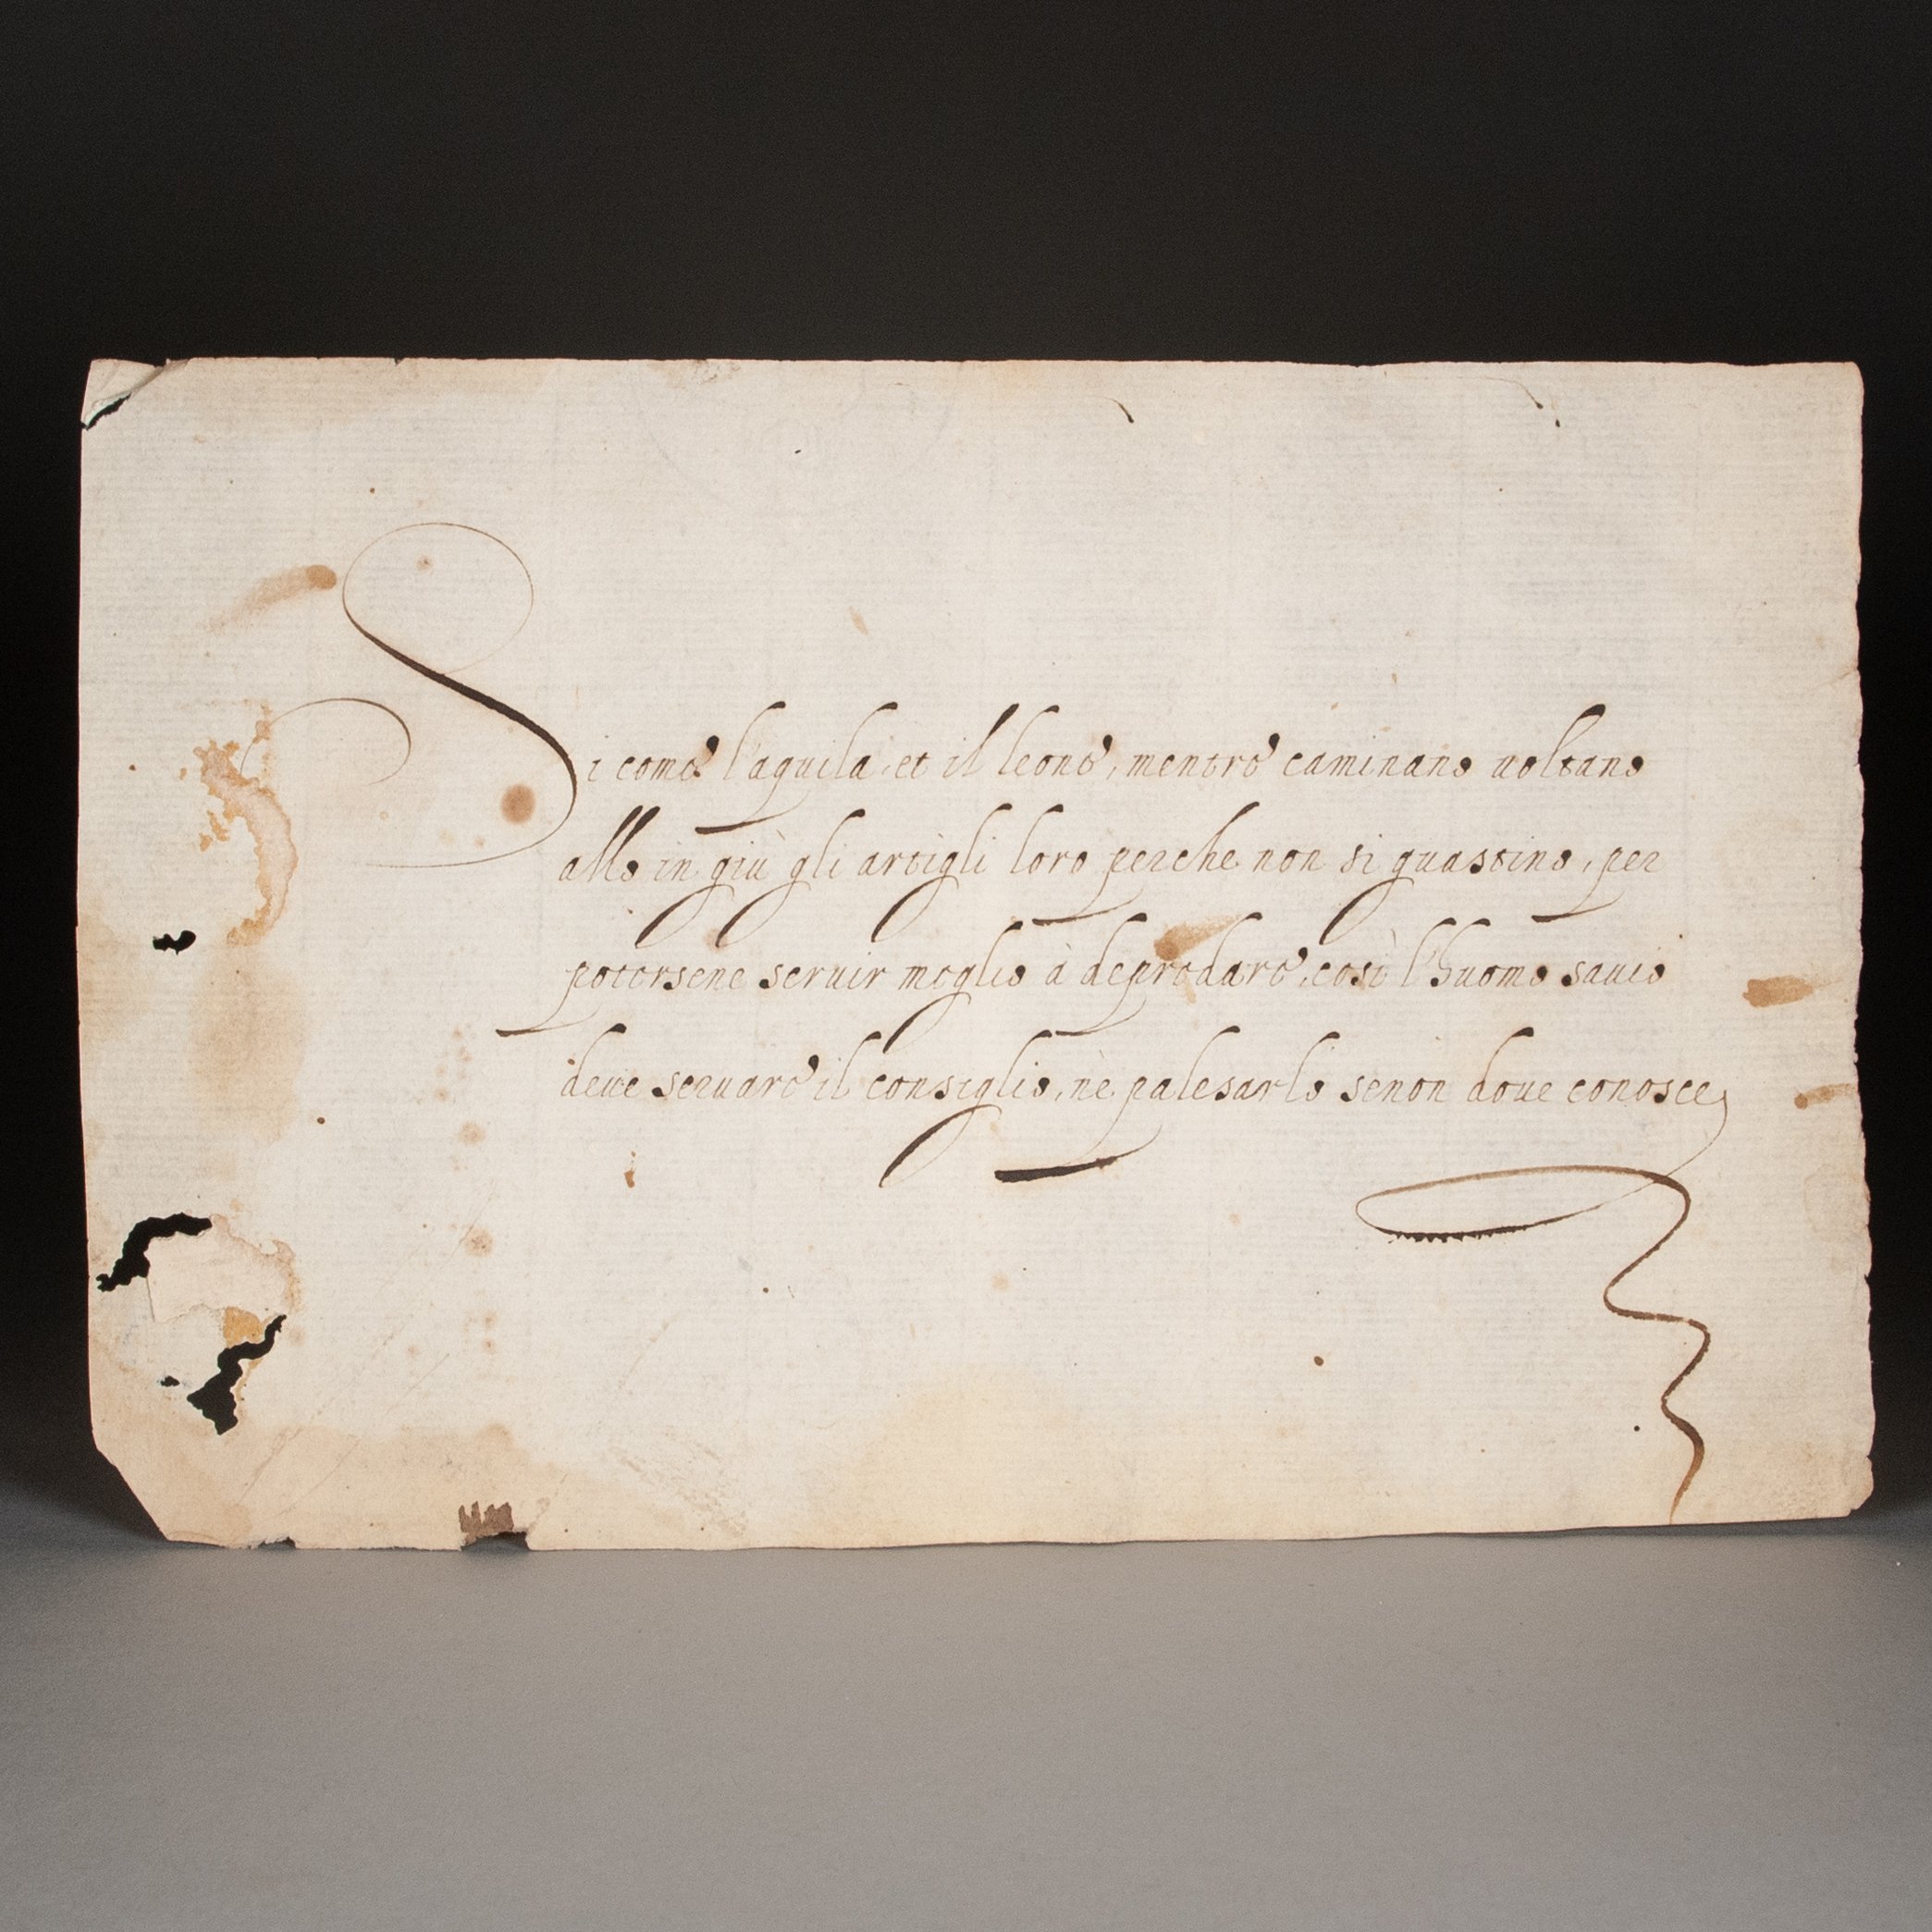 Si come l'aquila, et il leone, mentre caminano uoltano
allo in giù gli artigli loro perche non si guastino, per
potersene seruir meglio à depredare, così l'huomo sauio
deue seruare il consiglio, nè palesarlo senon doue conosce